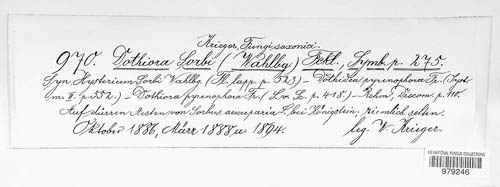 Krieger, Fungi saxonici.
970. Dothiora Sorbi (Wahlbg.) Fckl., Symb. p. 275.
Syn. Hysterium Sorbi Wahlbg. (Fl. lapp. p. 523) – Dothidea pyrenophora Fr. (Syst.
m. II. p. 552.) – Dothiora pyrenophora Fr. (S. v. Sc. p. 418) – Rehm, Discom. p. 110.
Auf dürren Aesten von Sorbus aucuparia L. bei Königstein, ziemlich selten.
Oktober 1886, März 1888 u. 1894. leg. W. Krieger.
US NATIONAL FUNGUS COLLECTIONS
979246